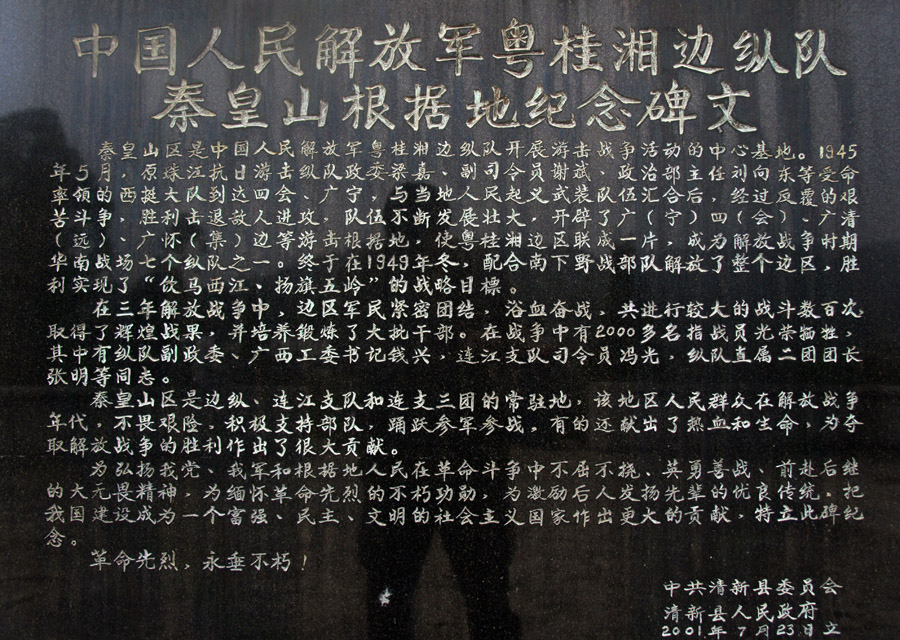 中国人民解放军粤桂湘边纵队
秦皇山根据地纪念碑文
秦皇山区是中国人民解放军粤桂湘边纵队开展游击战争活动的中心基地。1945
年5月，原珠江纵队政委梁嘉、副司令员谢斌、政治部主任刘向东等受命
率领的西挺大队抵达四会、广宁，与当地人民起义武装队伍汇合后，经过反覆的艰
苦斗争，胜利击退敌人进攻，队伍不断发展壮大，开辟了广（宁）四（会）、广清
（远）、广怀（集）边等游击根据地，使粤桂湘边区联成一片，成为解放战争时期
华南战场七个纵队之一。终于在1949年冬，配合南下野战部队解放了整个边区，胜
利实现了“饮马西江、扬旗五岭”的战略目標。
在三年解放战争中，边区军民紧密团结，浴血奋战，共进行较大的战斗数百次，
取得了辉煌战果，并培养鍛炼了大批干部。在战争中有2000多名指战员光荣牺牲，
其中有纵队副政委、广西工委书记钱兴，连江支队司令员冯光，纵队直属二团团长
张明等同志。
秦皇山区是边纵、连江支队和连支三团的常驻地，该地区人民群众在解放战争
年代，不畏艰险，积极支持部队，踊跃参军参战，有的还献出了热血和生命，为夺
取解放战争的胜利作出了很大贡献。
为弘扬我党、我军和根据地人民在革命斗争中不屈不挠、英勇善战、前赴后继
的大无畏精神，为缅怀革命先烈的不朽功勋，为激励后人发扬先辈的优良传统，把
我国建设成为一个富强、民主、文明的社会主义国家作出更大的贡献，特立此碑纪
念。
革命先烈，永垂不朽！
中共清新县委员会
清新县人民政府
2001年7月23日文